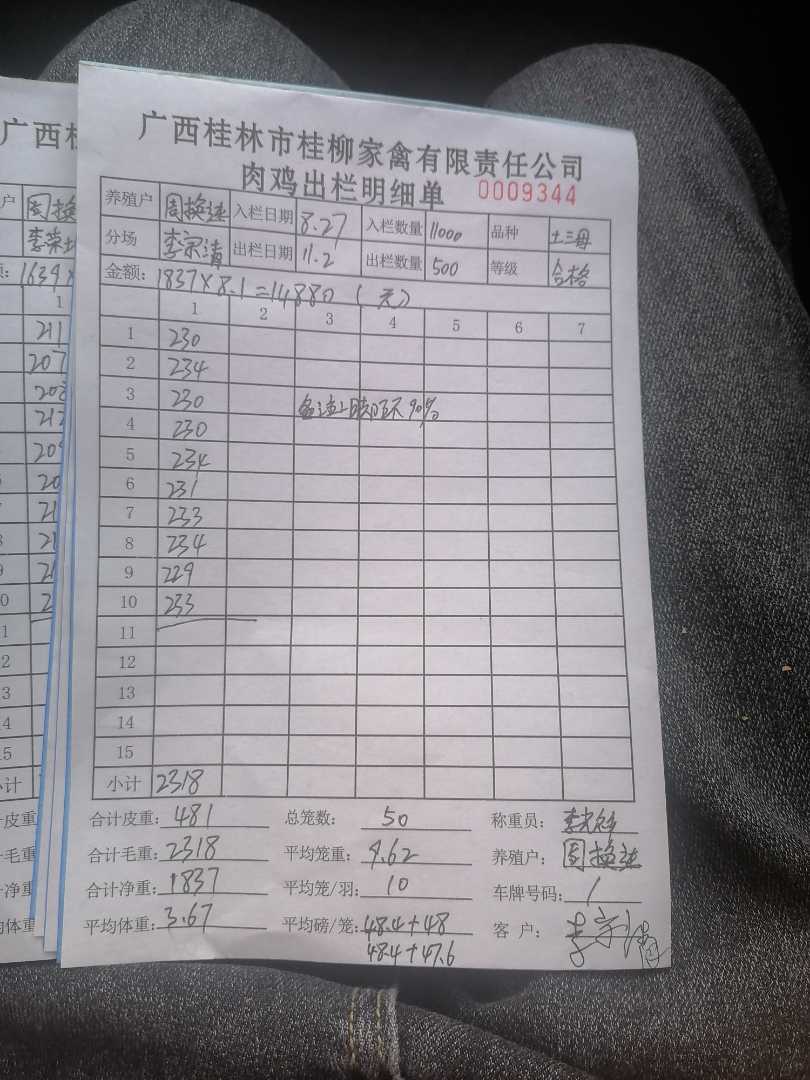 广西桂林市桂柳家禽有限责任公司
肉鸡出栏明细单 0009344
养殖户 周换连 入栏日期 8.27 入栏数量 11000 品种 土三母
分场 出栏日期 11.2 出栏数量 500 等级 合格
金额: 1837×8.1=14880(元)
1 2 3 4 5 6 7
1 230
2 234
3 230
4 230 90%
5 234
6 231
7 233
8 234
9 229
10 233
11
12
13
14
15
小计 2318
合计皮重: 481 总笼数: 50 称重员:
合计毛重: 2318 平均笼重: 9.62 养殖户: 周换连
合计净重: 1837 平均笼/羽: 10 车牌号码: /
平均体重: 3.67 平均磅/笼: 48.4+48 客户:
48.4+47.6
广西
户 周换
1634×
1
211
207
208
212